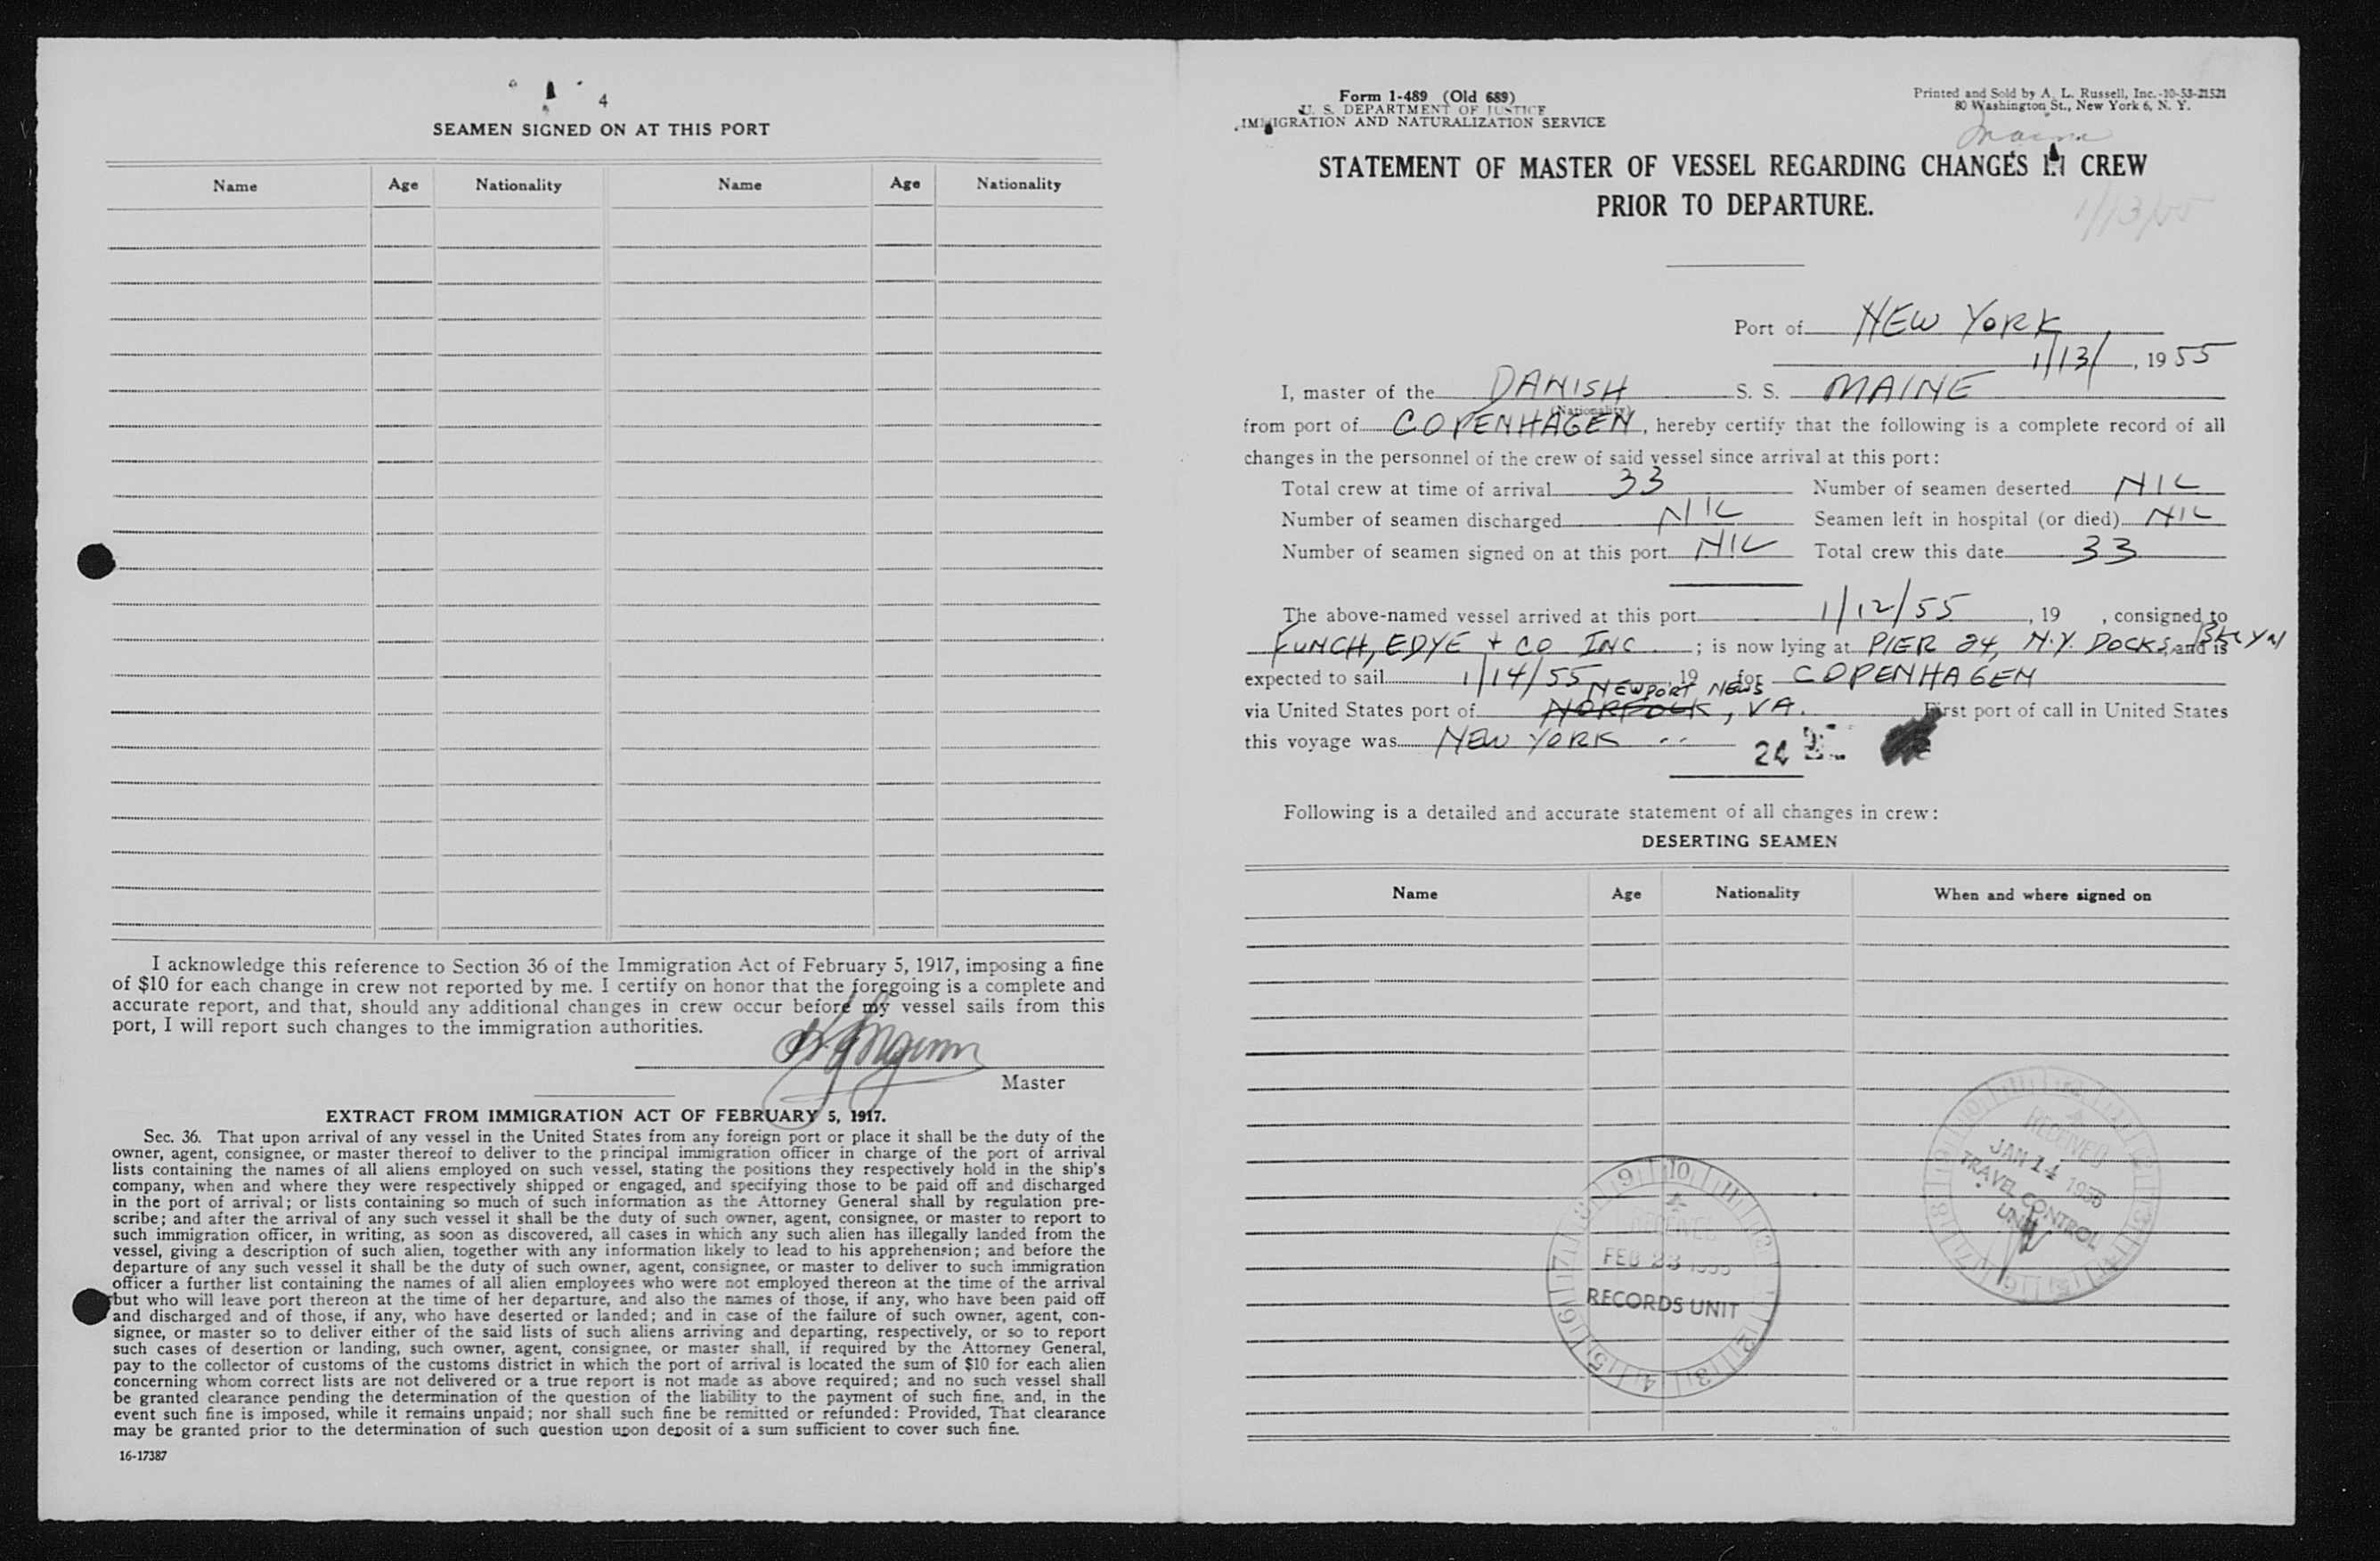 4
SEAMEN SIGNED ON AT THIS PORT
Name Age Nationality Name Age Nationality
I acknowledge this reference to Section 36 of the Immigration Act of February 5, 1917, imposing a fine
of $10 for each change in crew not reported by me. I certify on honor that the foregoing is a complete and
accurate report, and that, should any additional changes in crew occur before my vessel sails from this
port, I will report such changes to the immigration authorities.
Master
EXTRACT FROM IMMIGRATION ACT OF FEBRUARY 5, 1917.
Sec. 36. That upon arrival of any vessel in the United States from any foreign port or place it shall be the duty of the
owner, agent, consignee, or master thereof to deliver to the principal immigration officer in charge of the port of arrival
lists containing the names of all aliens employed on such vessel, stating the positions they respectively hold in the ship's
company, when and where they were respectively shipped or engaged, and specifying those to be paid off and discharged
in the port of arrival; or lists containing so much of such information as the Attorney General shall by regulation pre-
scribe; and after the arrival of any such vessel it shall be the duty of such owner, agent, consignee, or master to report to
such immigration officer, in writing, as soon as discovered, all cases in which any such alien has illegally landed from the
vessel, giving a description of such alien, together with any information likely to lead to his apprehension; and before the
departure of any such vessel it shall be the duty of such owner, agent, consignee, or master to deliver to such immigration
officer a further list containing the names of all alien employees who were not employed thereon at the time of the arrival
but who will leave port thereon at the time of her departure, and also the names of those, if any, who have been paid off
and discharged and of those, if any, who have deserted or landed; and in case of the failure of such owner, agent, con-
signee, or master so to deliver either of the said lists of such aliens arriving and departing, respectively, or so to report
such cases of desertion or landing, such owner, agent, consignee, or master shall, if required by the Attorney General,
pay to the collector of customs of the customs district in which the port of arrival is located the sum of $10 for each alien
concerning whom correct lists are not delivered or a true report is not made as above required; and no such vessel shall
be granted clearance pending the determination of the question of the liability to the payment of such fine, and, in the
event such fine is imposed, while it remains unpaid; nor shall such fine be remitted or refunded: Provided, That clearance
may be granted prior to the determination of such question upon deposit of a sum sufficient to cover such fine.
16-17387
Form 1-489 (Old 689)
U. S. DEPARTMENT OF JUSTICE
IMMIGRATION AND NATURALIZATION SERVICE
Printed and Sold by A. L. Russell, Inc.-10-53-21521
80 Washington St., New York 6, N. Y.
Maine
STATEMENT OF MASTER OF VESSEL REGARDING CHANGES IN CREW
PRIOR TO DEPARTURE.
1/13/55
Port of NEW YORK
1/13/, 19 55
I, master of the DANISH S. S. MAINE
(Nationality)
from port of COPENHAGEN, hereby certify that the following is a complete record of all
changes in the personnel of the crew of said vessel since arrival at this port:
Total crew at time of arrival 33 Number of seamen deserted NIL
Number of seamen discharged NIL Seamen left in hospital (or died) NIL
Number of seamen signed on at this port NIL Total crew this date 33
The above-named vessel arrived at this port 1/12/55, 19 , consigned to
FUNCH, EDYE + CO INC. ; is now lying at PIER 24, N.Y. DOCKS, BKLYN and is
expected to sail 1/14/55 19 for COPENHAGEN
NEWPORT NEWS
via United States port of NORFOLK, VA. First port of call in United States
this voyage was NEW YORK
Following is a detailed and accurate statement of all changes in crew:
DESERTING SEAMEN
Name Age Nationality When and where signed on
RECEIVED
JAN 14 1955
TRAVEL CONTROL
UNIT
RECEIVED
FEB 23 1955
RECORDS UNIT